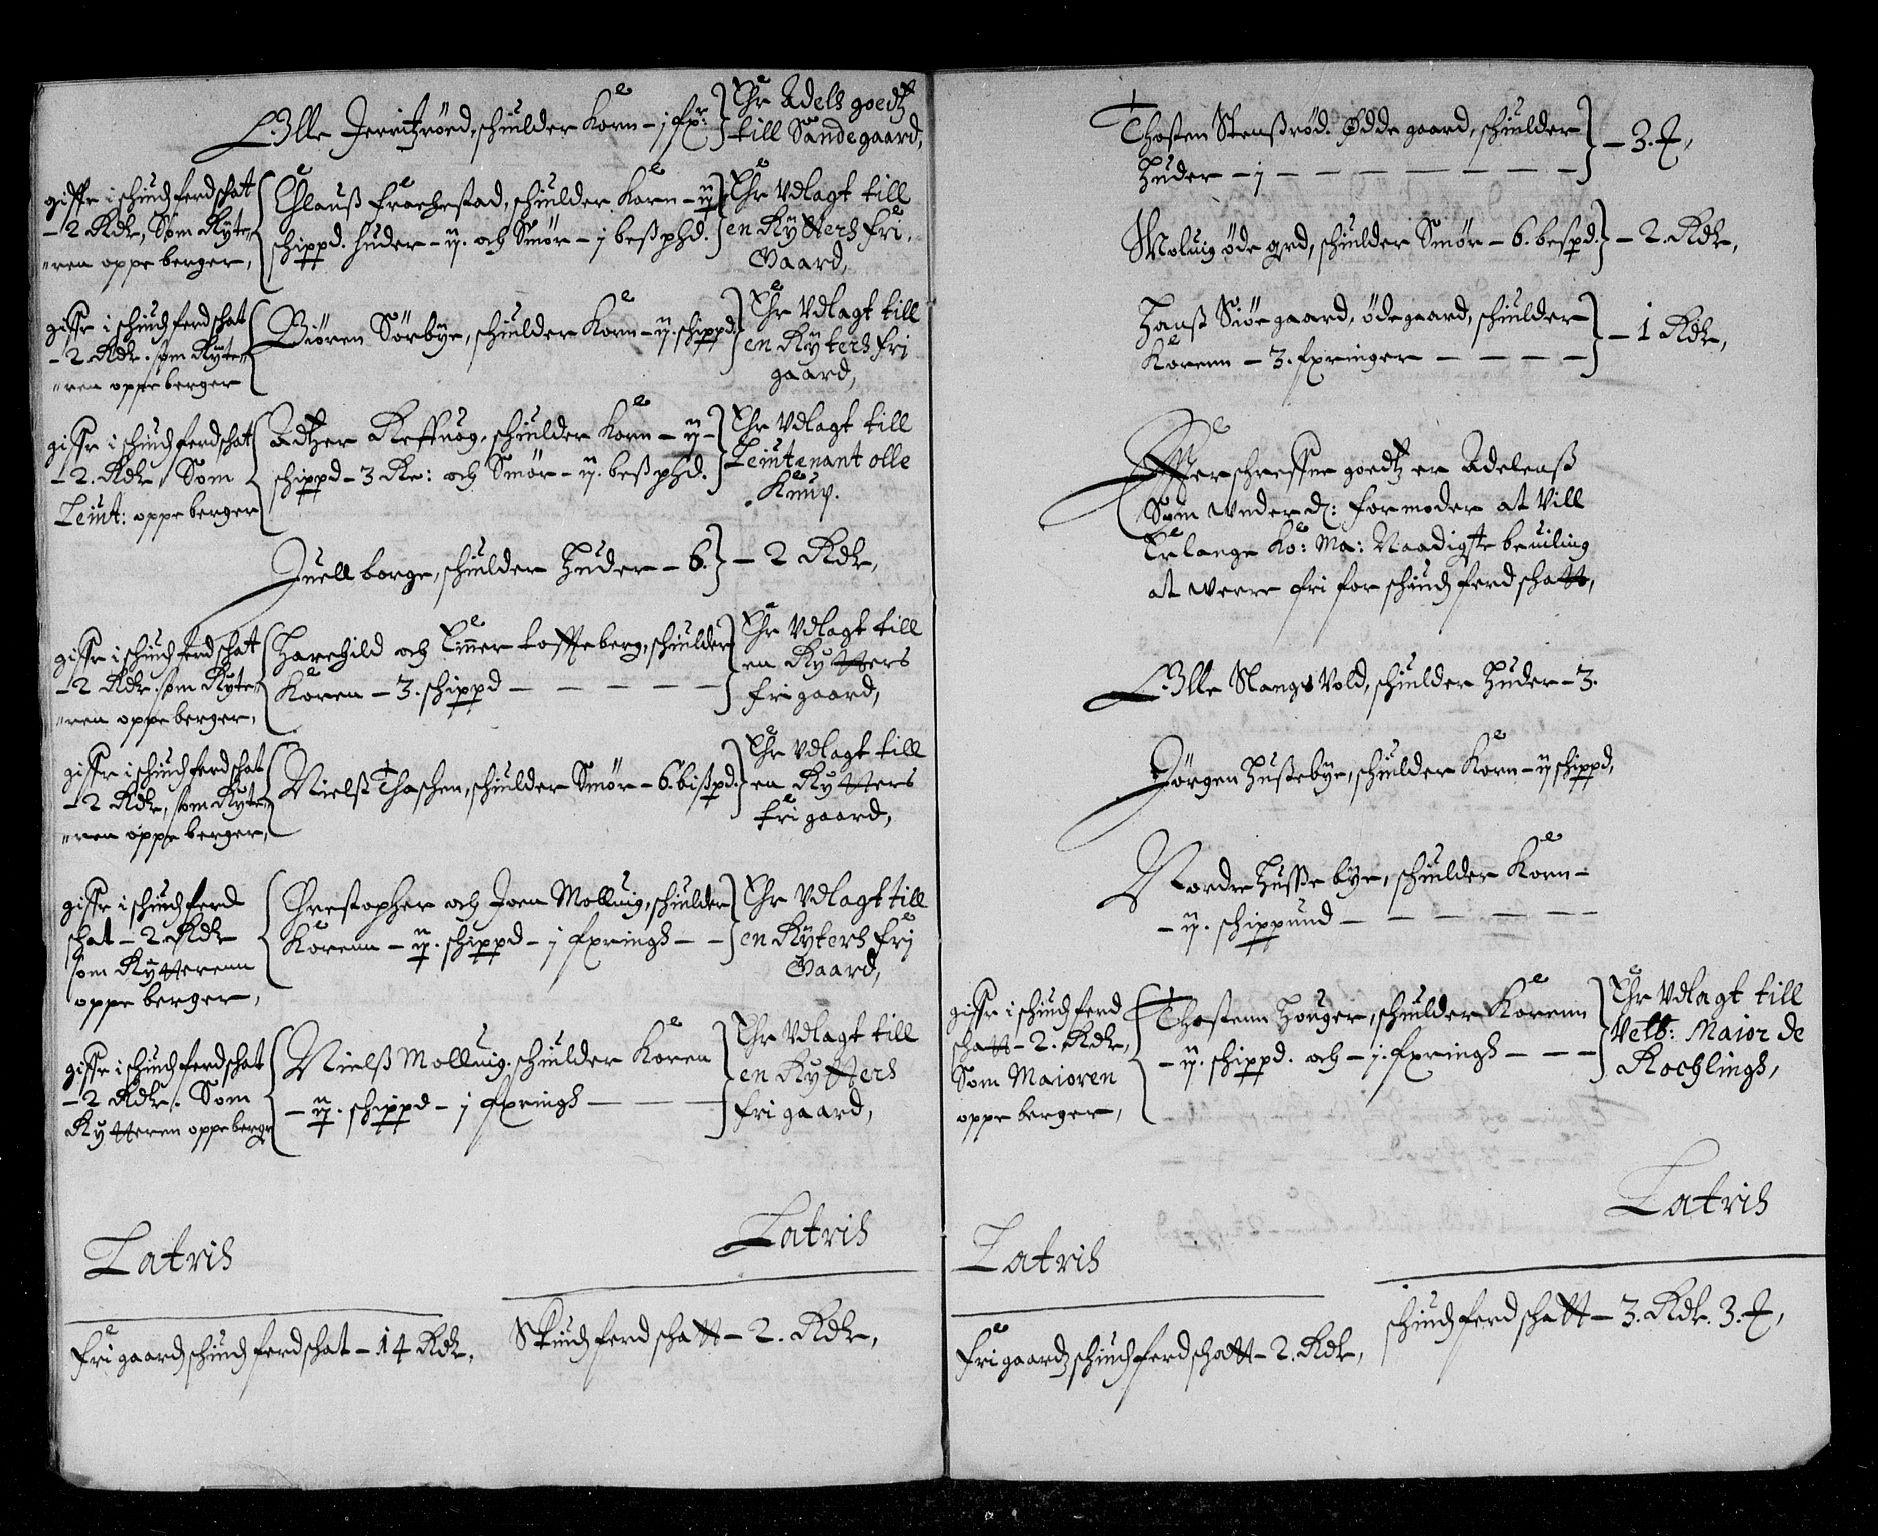 Olle Jerritzröed, schulder Korn – j fpr:
Ehr Adels goedtz
till Sandegaard,
giffr i schiudsferdschat
– 2 Rdlr, Som Ryte-
"ren oppe berger,
Clauß Frochestad, schulder Korn – ij
schippd. huder – ij. och Smör – j beßphd.
Ehr Vdlagt till
en Rytters fri
Gaard,
giffr i schiudsferdschat
– 2 Rdlr. som Ryte-
"ren oppe berger
Biören Sörbye, schulder Korn – ij. schippd,
Ehr Vdlagt till
en Ryters frj
gaard,
giffr i schiudsferdschat
– 2. Rdlr, Som
Leiut: oppe berger
Adtzer Reffnög, schulder Korn – ij –
schippd – 3 Re: och Smör – ij. beßphd.
Ehr Vdlagt till
Leiutenant olle
Knuß.
Juellborge, schulder Huder – 6.
– 2 Rdlr,
giffr i schiudsferdschat
– 2 Rdlr. som Ryte-
"ren oppe berger,
Harchild och Einer toffteberg, schulder
Koren – 3. schippd – – – – –
Ehr Vdlagt till
en Rytters
fri gaard,
giffr i schiudsferdschat
– 2 Rdlr, som Ryte-
"ren oppe berger,
Nielß Thaschen, schulder Smör – 6. bißpd.
Ehr Vdlagt till
en Rytters
fri gaard,
giffr i schiudsferd
schat – 2. Rdlr
som Rytterenn
oppe berger,
Chrestopher och Joen Molluig, schulder
Korenn – ij. schippd – j fprings – –
Ehr Vdlagt till
en Ryters frj
Gaard,
giffr i schiudsferdschat
– 2 Rdlr. Som
Rytteren oppe berger
Nielß Molluig, schulder Koren
– ij. schippd – j fprings – – –
Ehr Vdlagt till
en Rytters
fri gaard,
Latris
Latris
Fri gaards schiudsferdschat – 14 Rdlr,
Skiudsferdschatt – 2. Rdlr,
Thosten Stenßröd. Ødde gaard, schulder
Huder – j – – – – – – –
– 3. ₰,
Moluig öde grd, schulder Smör – 6. beßpd.
– 2. Rdlr,
Hanß Siöegaard, öde gaard, schulder
Korenn – 3. fpringer – – – –
– 1 Rdlr,
Effterschreffne goedtz er Adelenß
Som vnder d: formoder at Vill
Erlange Ko: Ma: Naadigste beuiling
at weere fri for schiudsferdschatt,
Olle Slangsvold, schulder Huder – 3.
Jörgen Hußebye, schulder Korn – ij schippd,
Nordre Husse bye, schulder Korn –
– ij. schippund – – – – – –
giffr i schiudsferd
schatt – 2. Rdlr,
Som Maioren
oppe berger,
Thostenn Houger, schulder Korenn
– ij. schippd. och – j. fprings – – –
Ehr Vdlagt till
Velb: Maior de
Rochlings,
Latris
Latris
Fri gaards schiudsferdschatt – 2. Rdlr,
schiudsferdschatt – 3. Rdlr. 3. ₰,